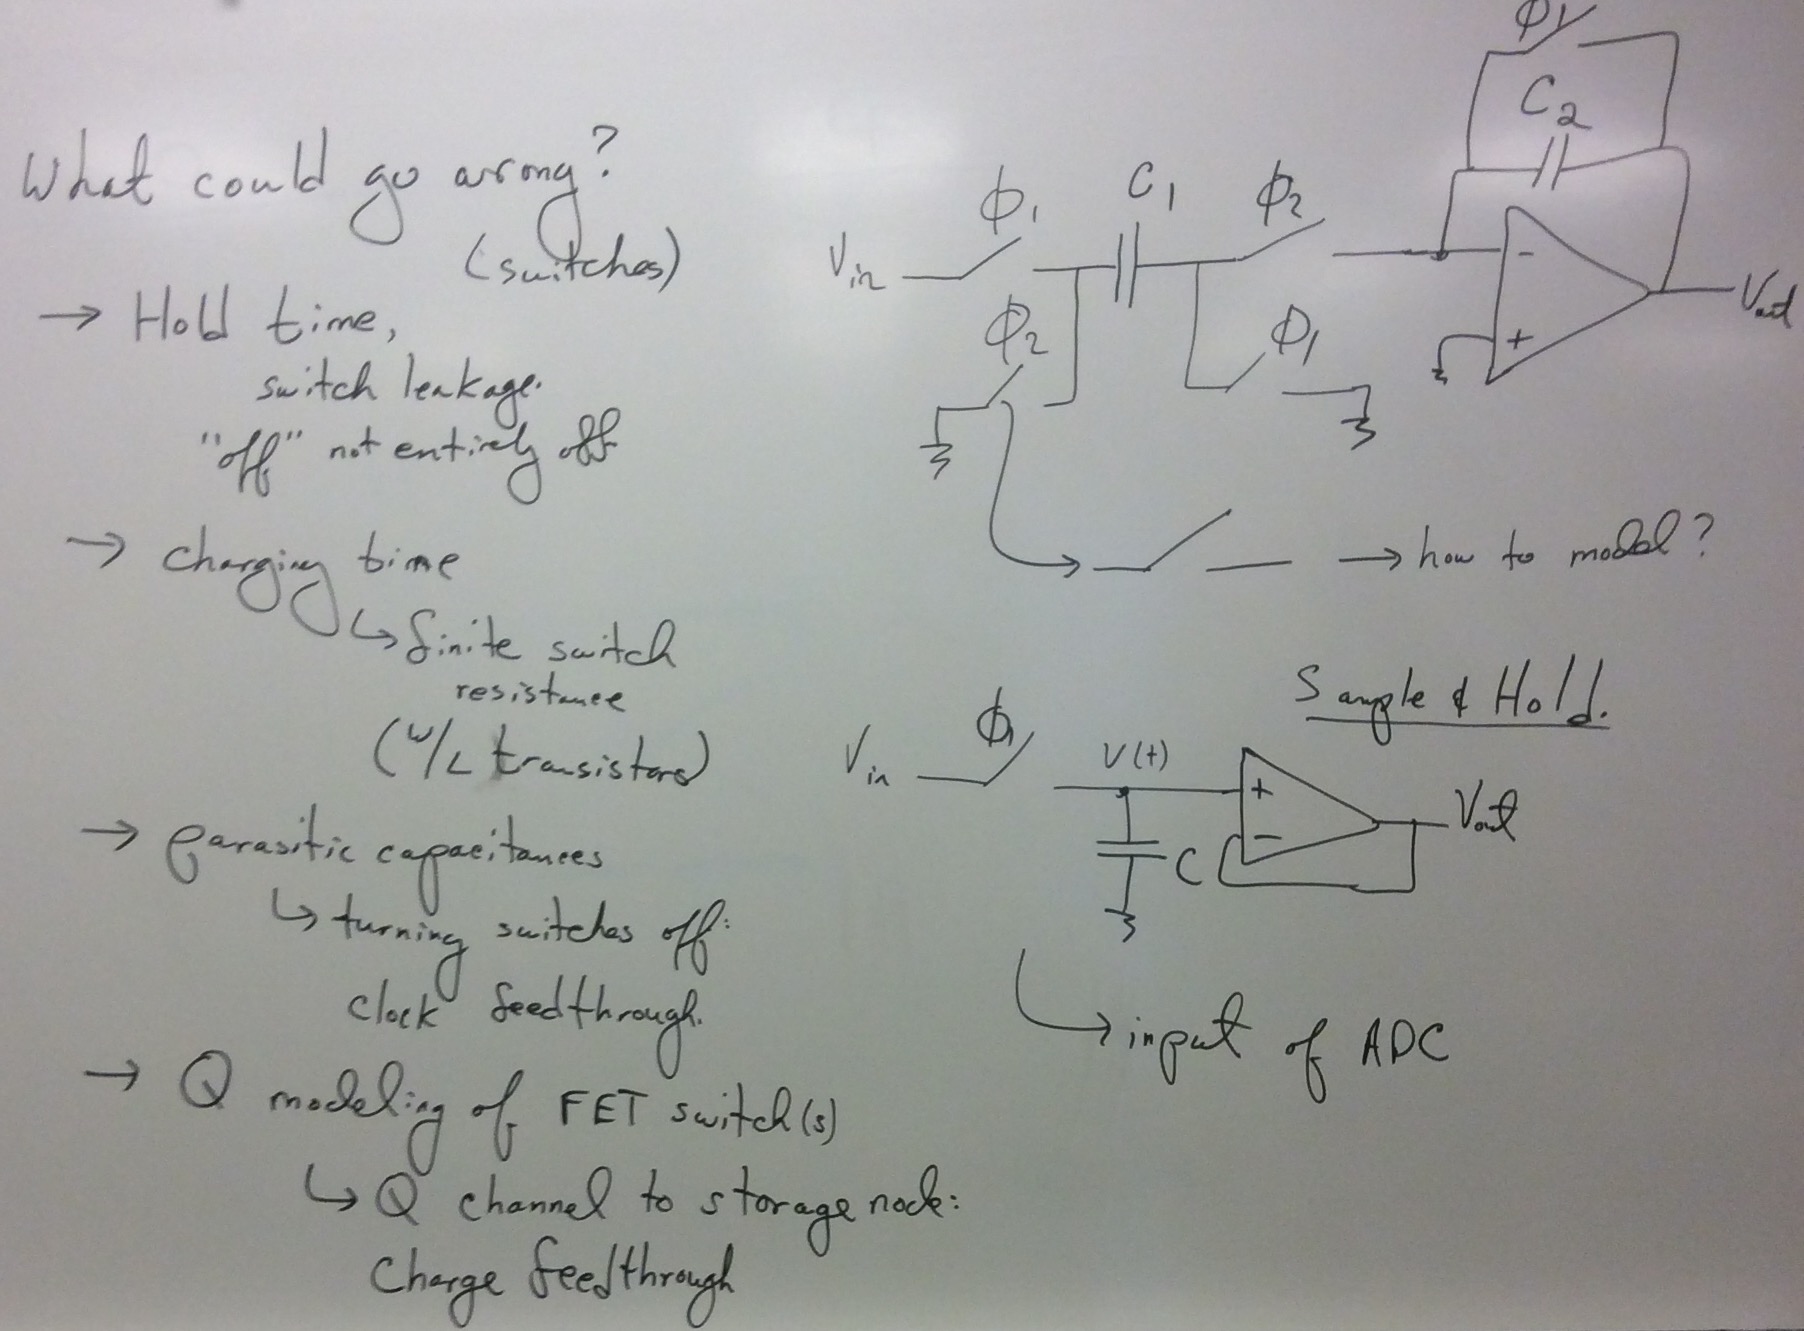 What could go wrong?
(switches)
→ Hold time,
switch leakage.
"off" not entirely off.
→ charging time
↳ finite switch
resistance
(W/L transistors)
→ parasitic capacitances
↳ turning switches off:
clock feedthrough.
→ Q modeling of FET switch(s)
↳ Q channel to storage node:
Charge feedthrough
ϕ1
C2
ϕ1 C1 ϕ2
Vin
- 
Vout
ϕ2 ϕ1
+
→ how to model?
Sample & Hold.
Vin ϕ1 V(t)
+
Vout
-
C
→ input of ADC